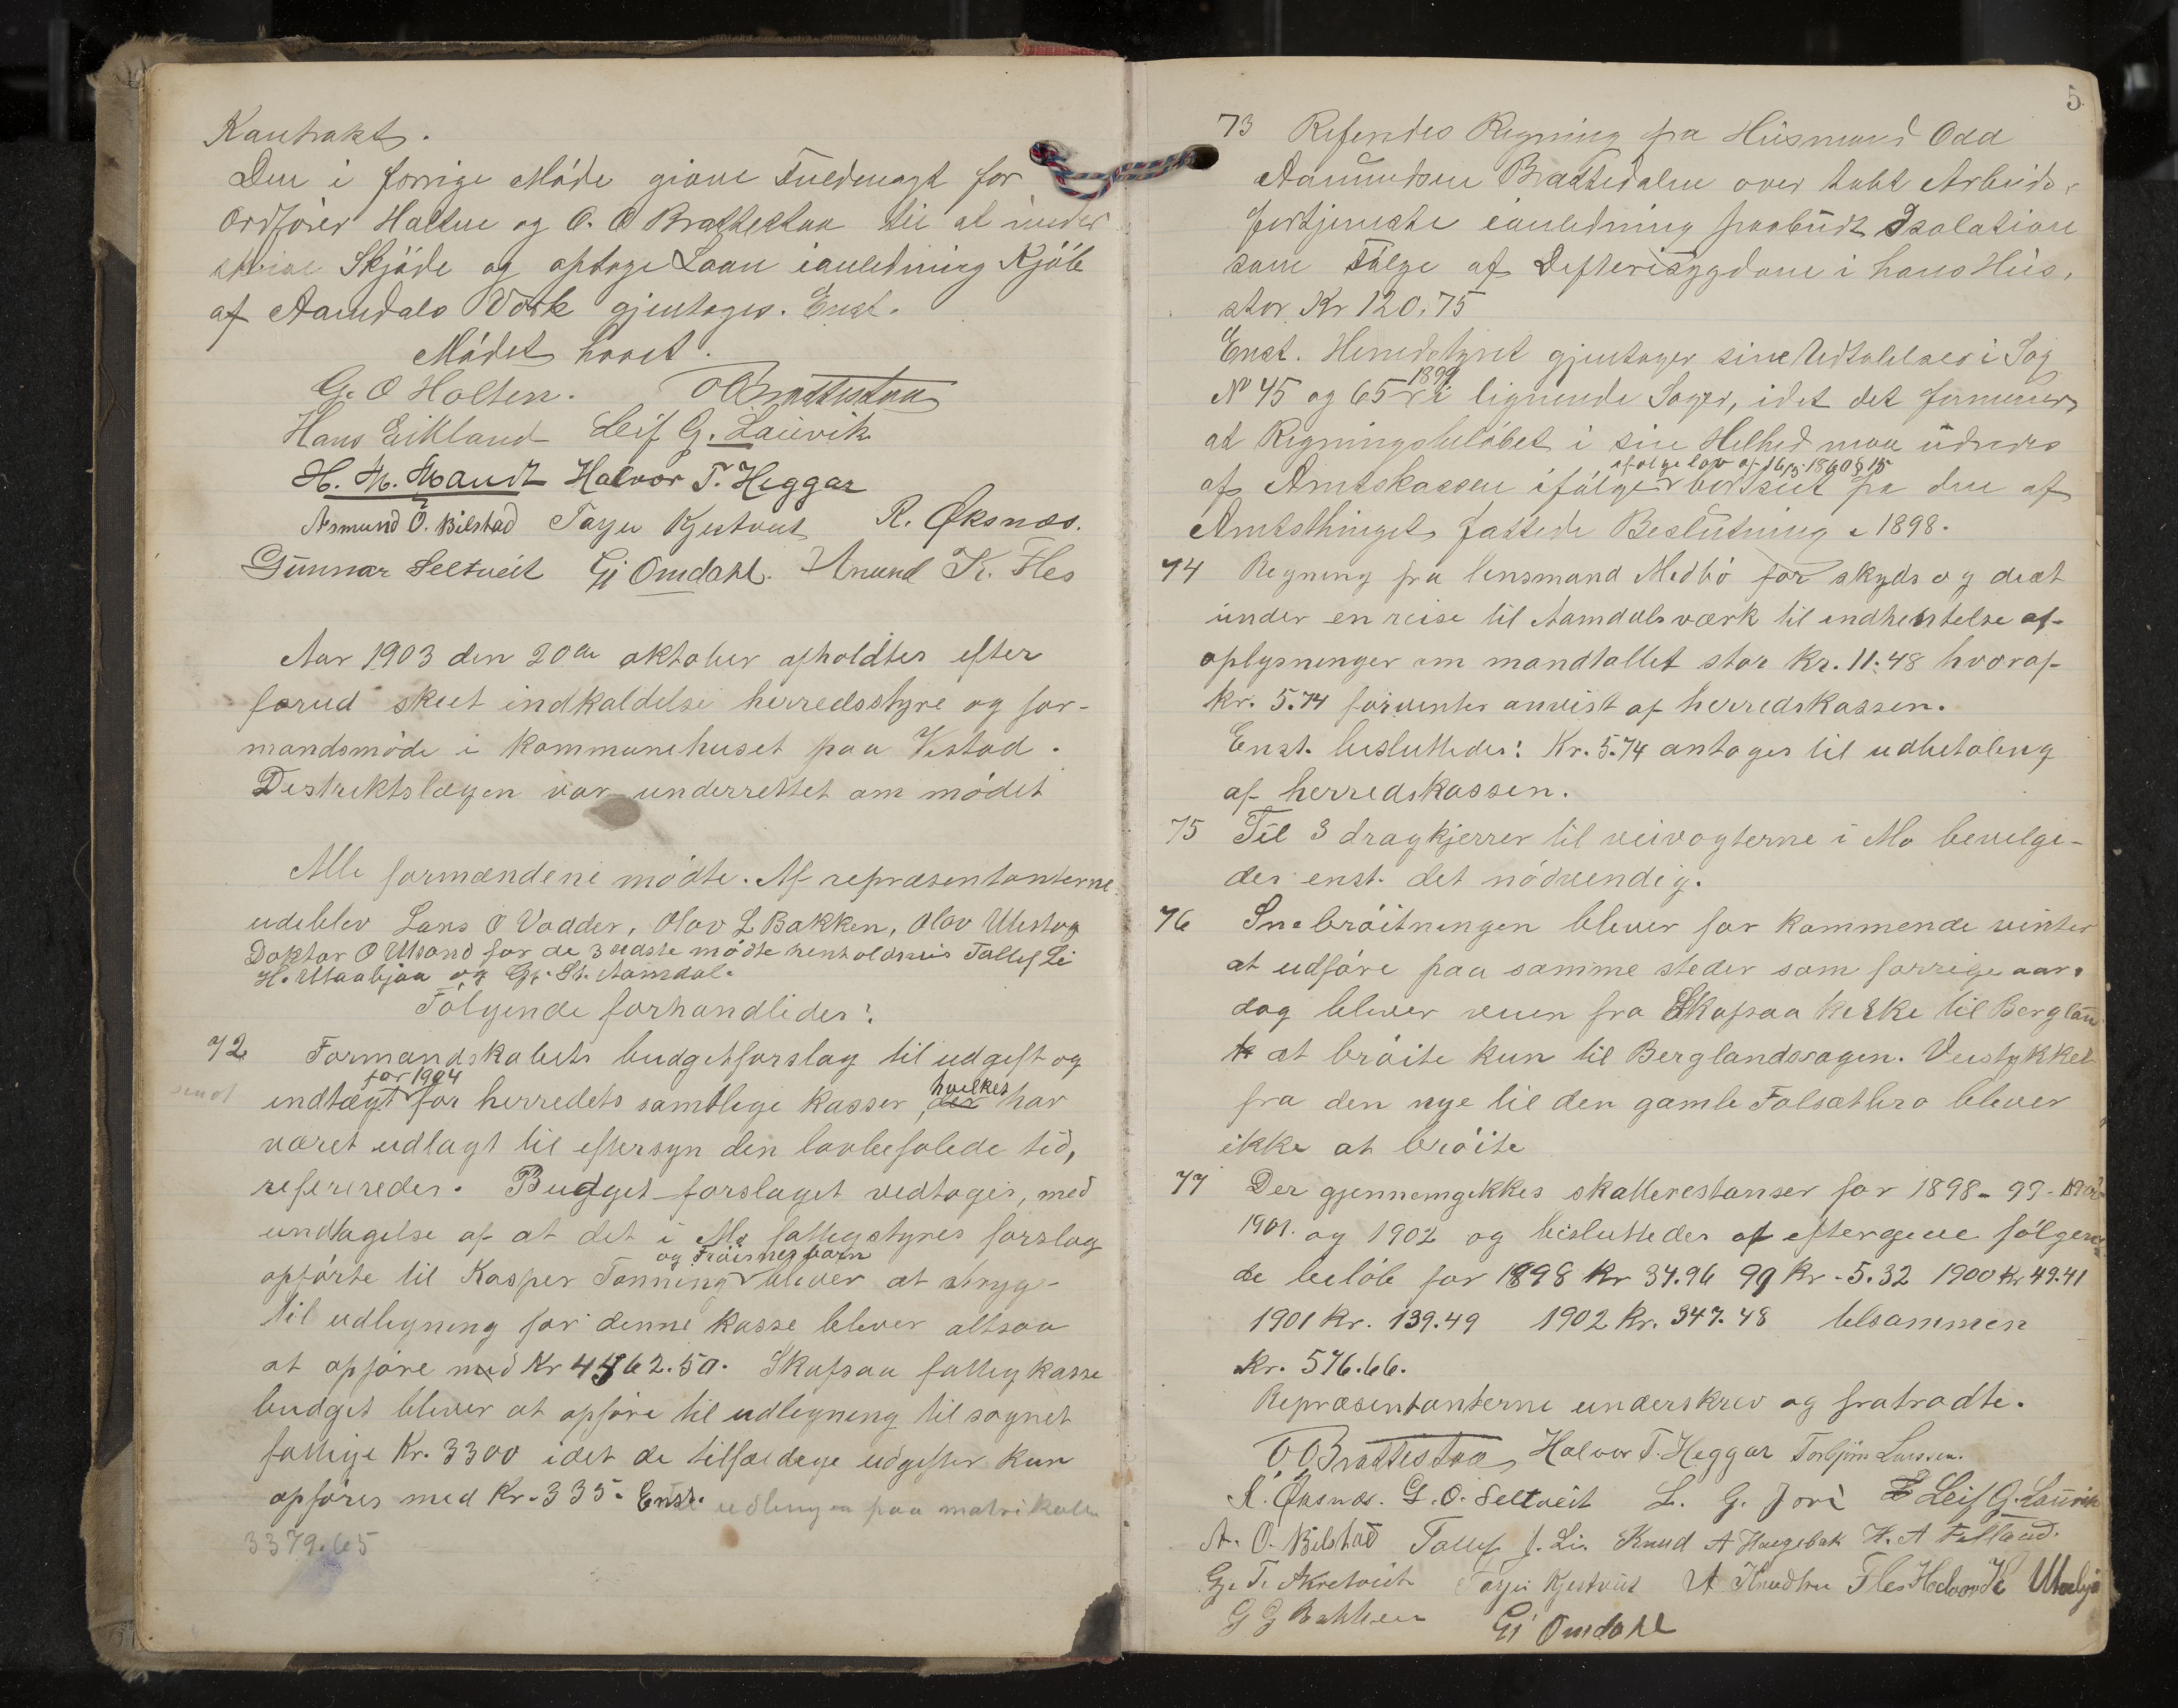 Kontrakt.
Den i forrige Møde givne Fuldmagt for
Ordfører Holten og O. O Brattestaa til at under
skrive Skjøde og optage Laan ianledning Kjøb
af Aamdals Værk gjentages. Enst.
Mødet hævet.
G. O Holten. O O Brattestaa
Hans Eikland Leif G. Lauvik
H. M. Mandt Halvor T. Heggar
Asmund O. Bilstad Tarjei Kjestveit R. Øksnæs.
Gunnar Seltveit Gj Omdahl. Anund K. Fles
Aar 1903 den 20de oktober afholdtes efter
forud skeet indkaldelse herredsstyre og for-
mandsmøde i kommunehuset paa Vistad.
Destriktslægen var underrettet om mødet
Alle formændene mødte. Af repræsentanterne
udeblev Lars O Vadder, Olav L Bakken, Olav Ulestog
Doktor O Msand for de 3 sidste mødte henholdsvis Tallef Li
H. Utaabjaa og Gj. St. Aamdal.
Følgende forhandledes:
72 Formandskabets budgetforslag til udgift og
for 1904
indtægt for herredets samtlige kasser, der hvilket har
sendt
været udlagt til eftersyn den lovbefalede tid,
refereredes. Budget-forslaget vedtages, med
undtagelse af at det i Mo fattigstyres forslag
og Frøisnes barn
opførte til Kasper Tønning bliver at stryge
Til udligning for denne kasse bliver altsaa
at opføre med Kr 4562.50. Skafsaa fattigkasse
budget bliver at opføre til udligning til sognet
fattige Kr. 3300 idet de tilfældige udgifter kun
opføres med Kr. 335. Enst. udlingen paa matrikulen
3379.65
5
73 Referedes Regning fra Husmand Odd
Aamundsen Brattedalen over tabt Arbeids
fortjeneste ianledning paabudt Isolation
som Følge af Defterisygdom i hans Hus,
stor Kr 120,75
Enst. Herredstyret gjentager sine Udtalelser i Sag
1899
No 45 og 65 i lignende Sager, idet det formener
at Regningsbeløbet i sin Helhed maa udredes
ifølge lov af 16/5 1860 § 15
af Amtskassen ifølge bortseet fra den af
Amtsthinget fattede Beslutning i 1898.
74 Regning fra lensmand Medbø for skyds og diæt
under en reise til Aamdalsværk til indhentelse af
oplysninger om mandtallet stor kr. 11.48 hvoraf
kr. 5.74 forventes anvist af herredskassen.
Enst. besluttedes: Kr. 5.74 antages til udbetaling
af herredskassen.
75 Til 3 dragkjerrer til veivogterne i Mo bevilge-
des enst. det nødvendig.
76 Snebrøitningen bliver for kommende vinter
at udføre paa samme steder som forrige aar.
dog bliver veien fra Skafsaa kirke til Bergland
at brøite kun til Berglandssagen. Veistykket
fra den nye til den gamle Falsætbro bliver
ikke at brøite
77 Der gjennemgikkes skatterestanser for 1898-99-1900
1901. og 1902 og besluttedes at eftergive følgen-
de beløb for 1898 kr 34.96 99 kr. 5.32 1900 kr 49.41
1901 kr. 139.49 1902 kr. 347.48 tilsammen
kr. 576.66.
Repræsentanterne underskrev og fratradte.
O O Brattestaa, Halvor T. Heggar Torbjørn Larssen.
R. Øksnæs. G. O. Seltveit L. G. Jore Leif G. Lauvik
A. O. Bilstad Tallef J. Li. Knud A Haugebak H. A Felland.
Gj. T. Akretveit Tarjei Kjestveit A Knudsen Fles Halvor H. Utaabjaa
G G Bakken Gj Omdahl